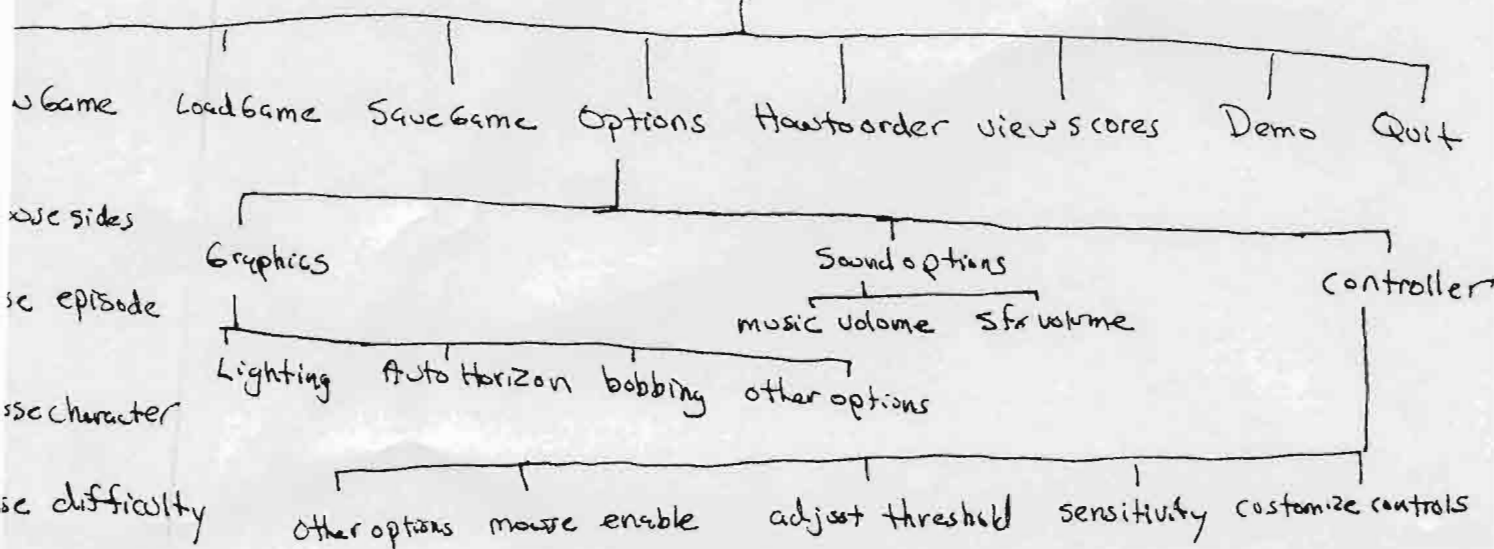 w Game Load Game Save Game Options How to order view scores Demo Quit
ose sides
Graphics Sound options controller
se episode
music volome sfx volume
Lighting Auto Horizon bobbing other options
ose character
se difficulty other options mouse enable adjust threshold sensitivity costomize controls